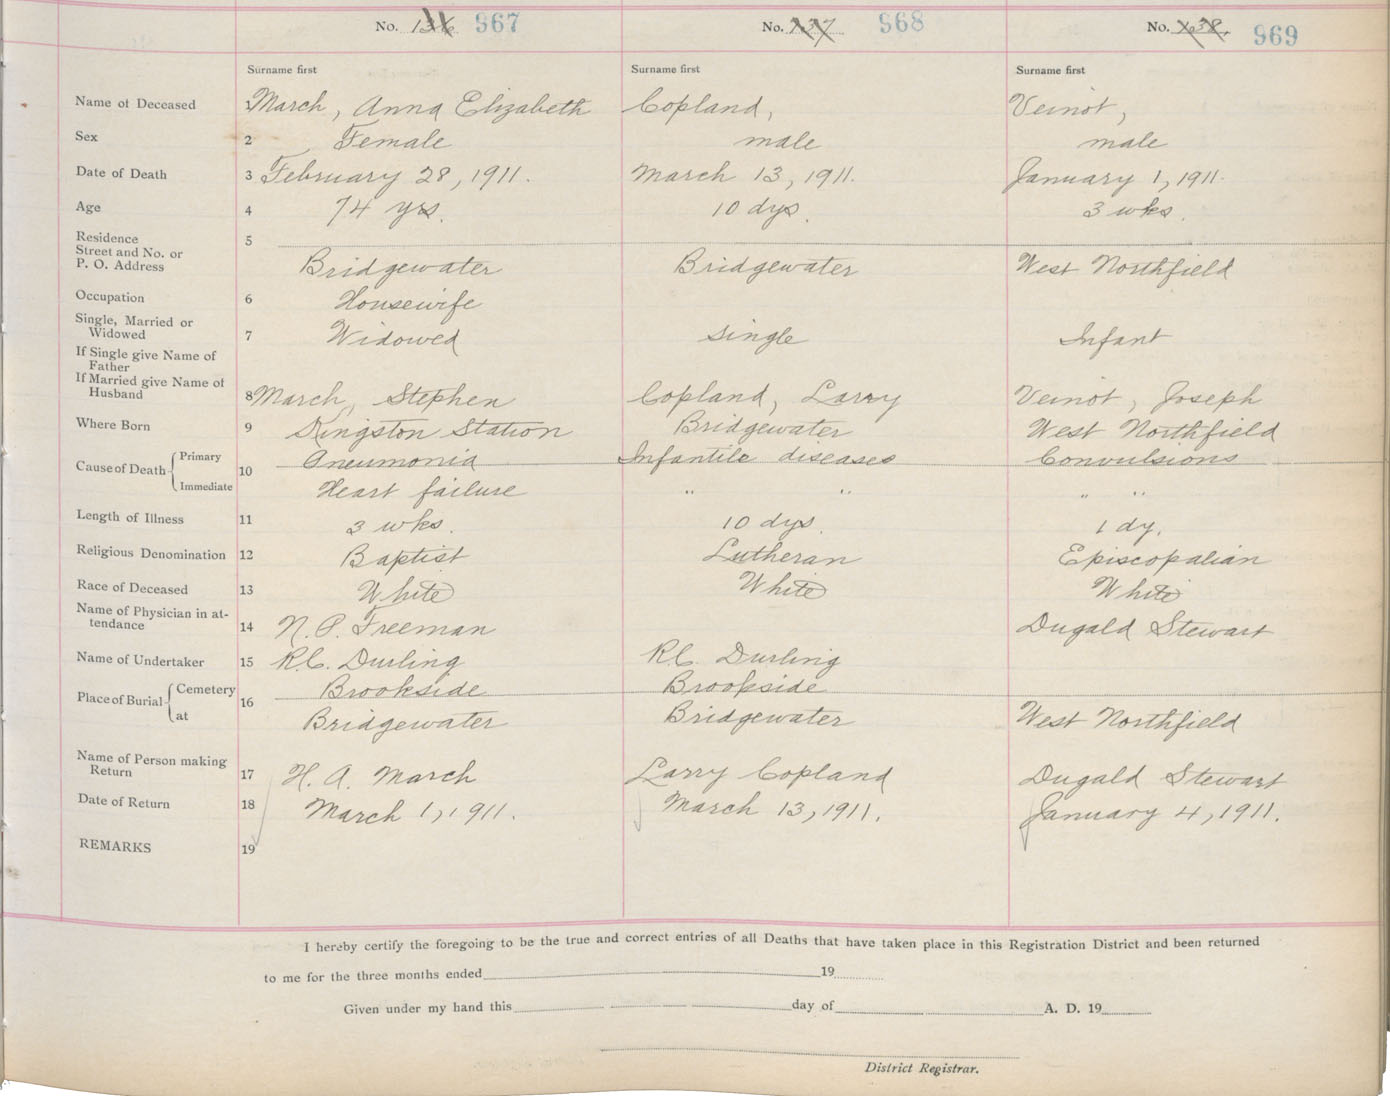 No. 136 967 No. 137 968 No. 138. 969
Surname first Surname first Surname first
Name of Deceased 1 March, Anna Elizabeth Copland, Veinot,
Sex 2 Female male male
Date of Death 3 February 28, 1911. March 13, 1911. January 1, 1911.
Age 4 74 yrs. 10 dys. 3 wks.
Residence 5
Street and No. or
P. O. Address Bridgewater Bridgewater West Northfield
Occupation 6 Housewife
Single, Married or
Widowed 7 Widowed single Infant
If Single give Name of
Father
If Married give Name of
Husband 8 March, Stephen Copland, Larry Veinot, Joseph
Where Born 9 Kingston Station Bridgewater West Northfield
Cause of Death Primary 10 Pneumonia Infantile diseases Convulsions
Immediate Heart failure " " " "
Length of Illness 11 3 wks. 10 dys. 1 dy.
Religious Denomination 12 Baptist Lutheran Episcopalian
Race of Deceased 13 White White White
Name of Physician in at-
tendance 14 N. P. Freeman Dugald Stewart
Name of Undertaker 15 R.C. Durling R.C. Durling
Place of Burial Cemetery 16 Brookside Brookside
at Bridgewater Bridgewater West Northfield
Name of Person making
Return 17 H. A. March Larry Copland Dugald Stewart
Date of Return 18 March 1, 1911. March 13, 1911. January 4, 1911.
REMARKS 19
I hereby certify the foregoing to be the true and correct entries of all Deaths that have taken place in this Registration District and been returned
to me for the three months ended 19
Given under my hand this day of A. D. 19
District Registrar.